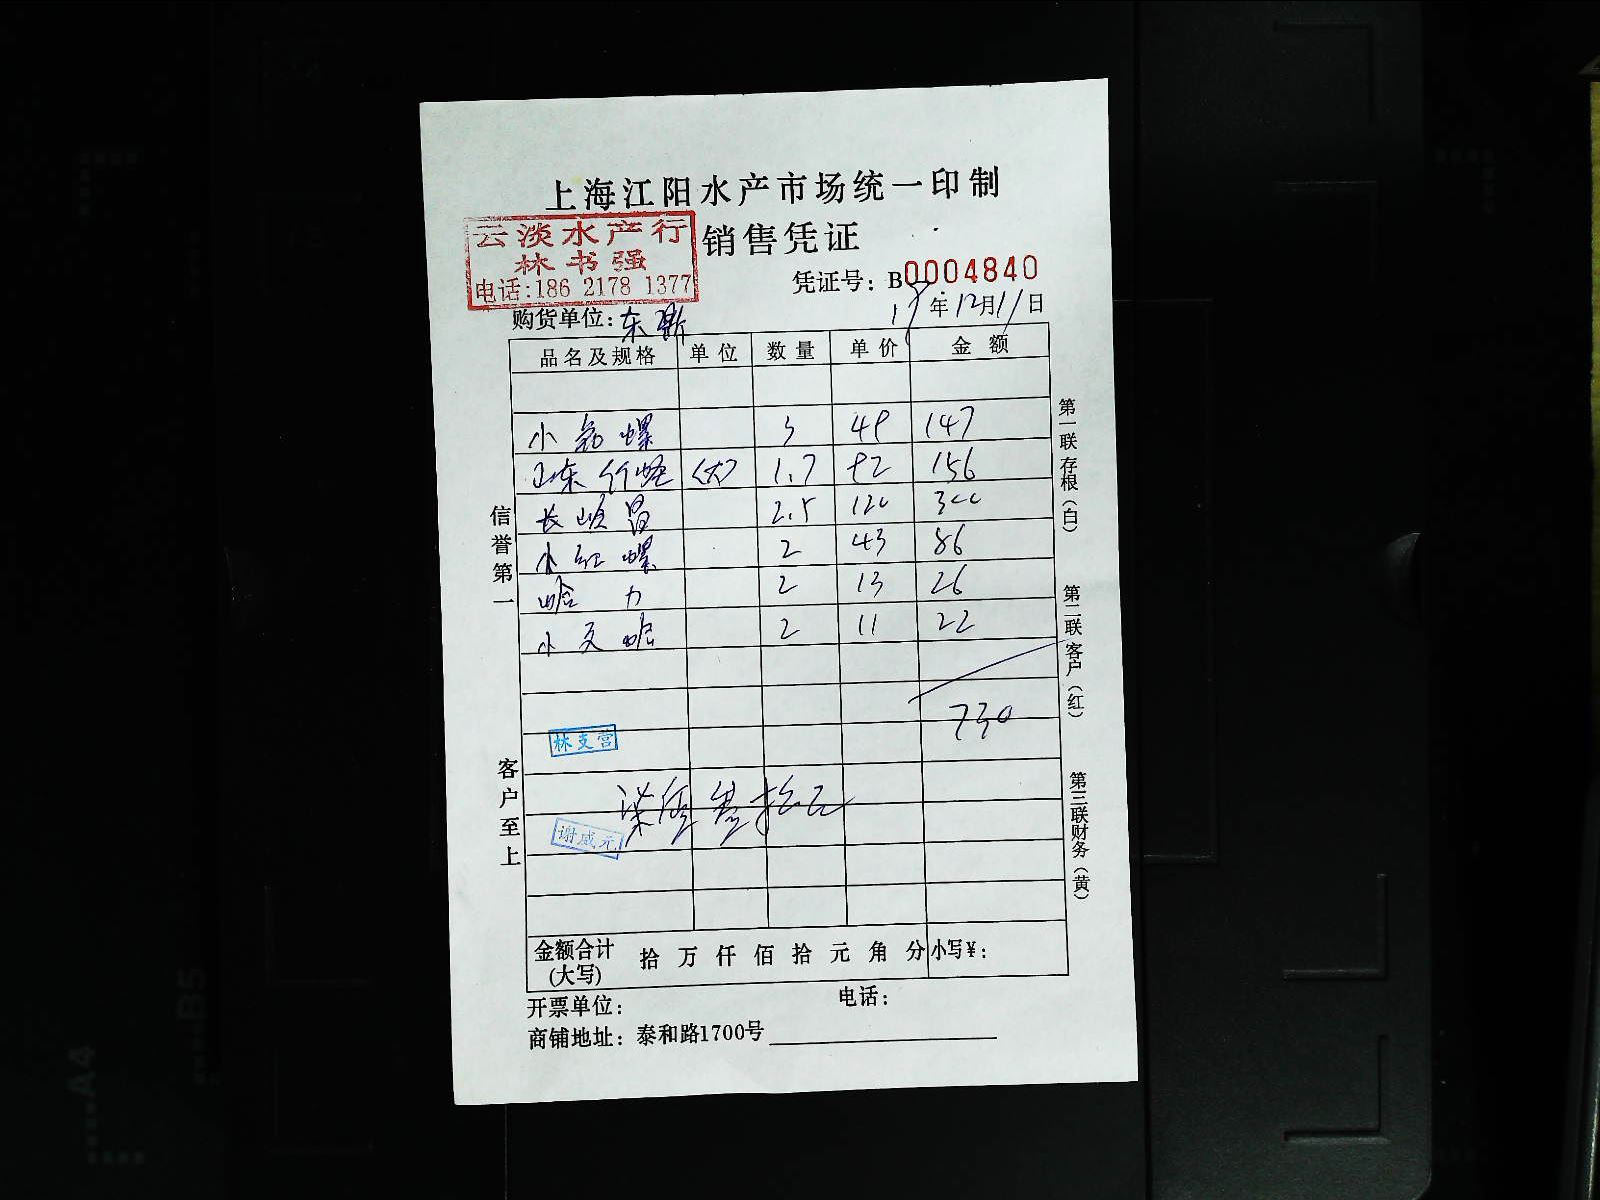 上海江阳水产市场统一印制
云淡水产行
林书强
电话:186 2178 1377
销售凭证
凭证号：B0004840
购货单位：东
年12月11日
品名及规格 单位 数量 单价 金额
小 螺 3 49 147
山东竹蛏 〈大〉 1.7 92 156
长 2.5 120 300
小红螺 2 43 86
哈力 2 13 26
小文哈 2 11 22
730
林支营
拾元
谢咸元
金额合计(大写) 拾 万 仟 佰 拾 元 角 分 小写¥：
开票单位： 电话：
商铺地址：泰和路1700号
信誉第一
客户至上
第一联 存根（白）
第二联 客户（红）
第三联财务（黄）